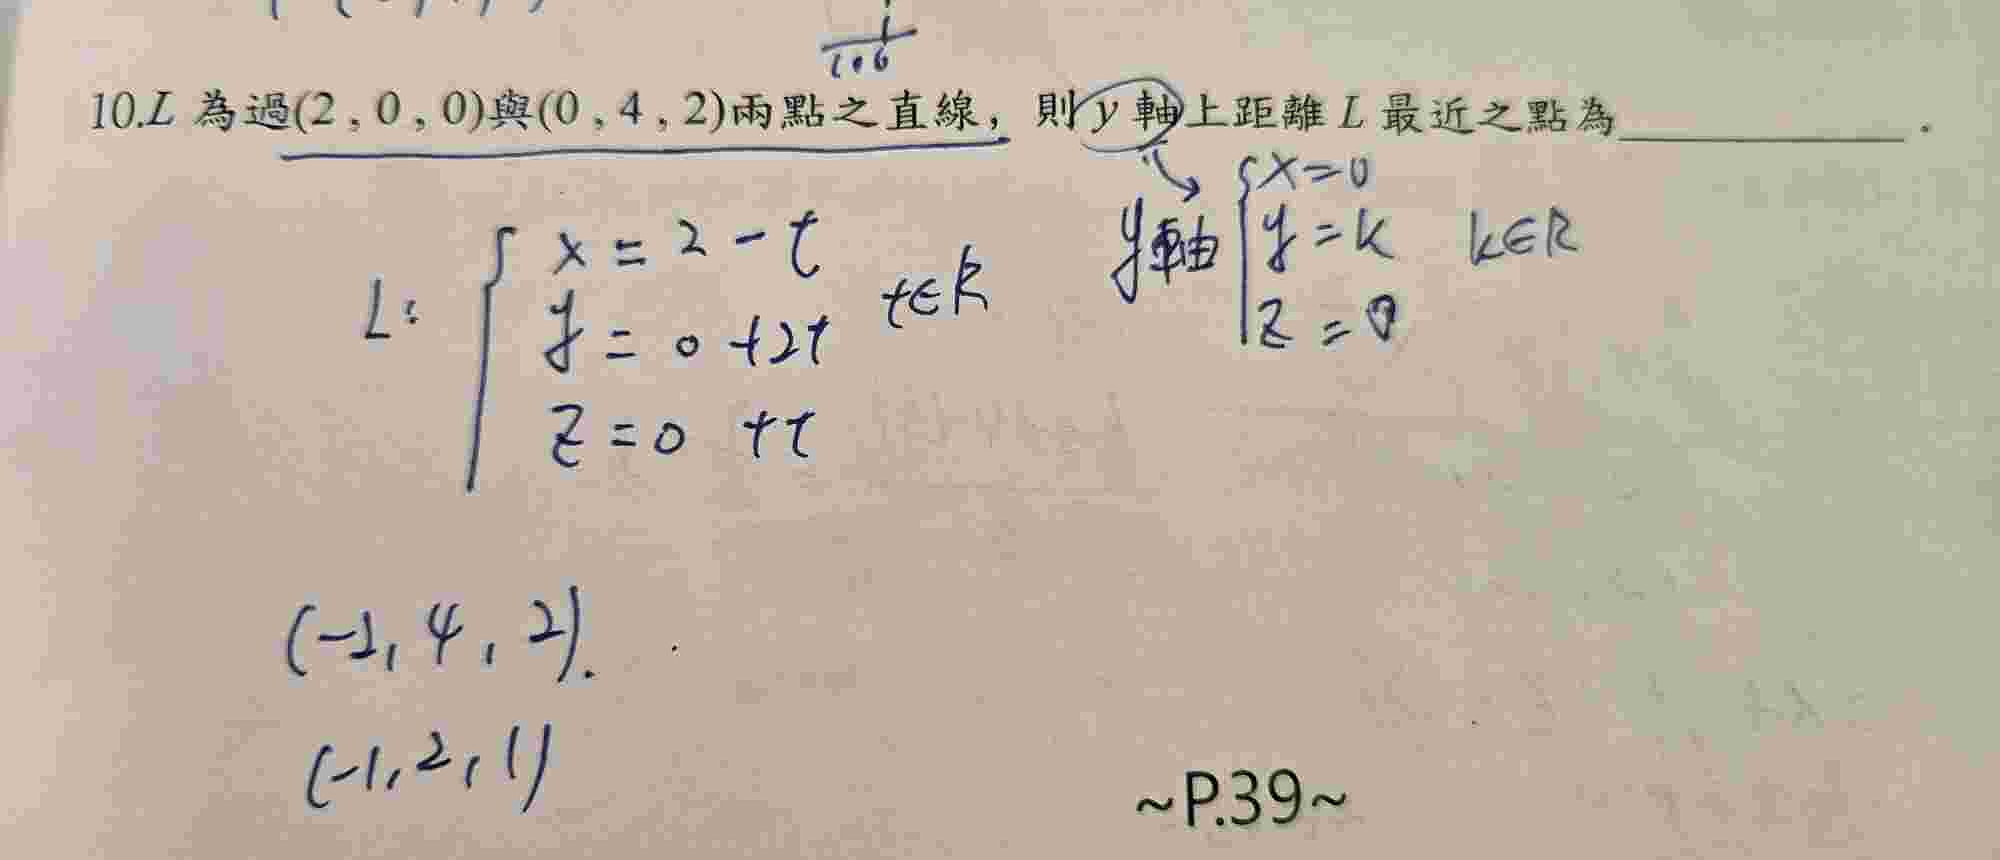 1
106
10.L 為過(2 , 0 , 0)與(0 , 4 , 2)兩點之直線，則 y 軸上距離 L 最近之點為____________.
L: { x = 2 - t
y = 0 +2t t∈R
z = 0 +t
y軸 { x = 0
y = k k∈R
z = 0
(-2, 4, 2).
(-1, 2, 1)
~P.39~